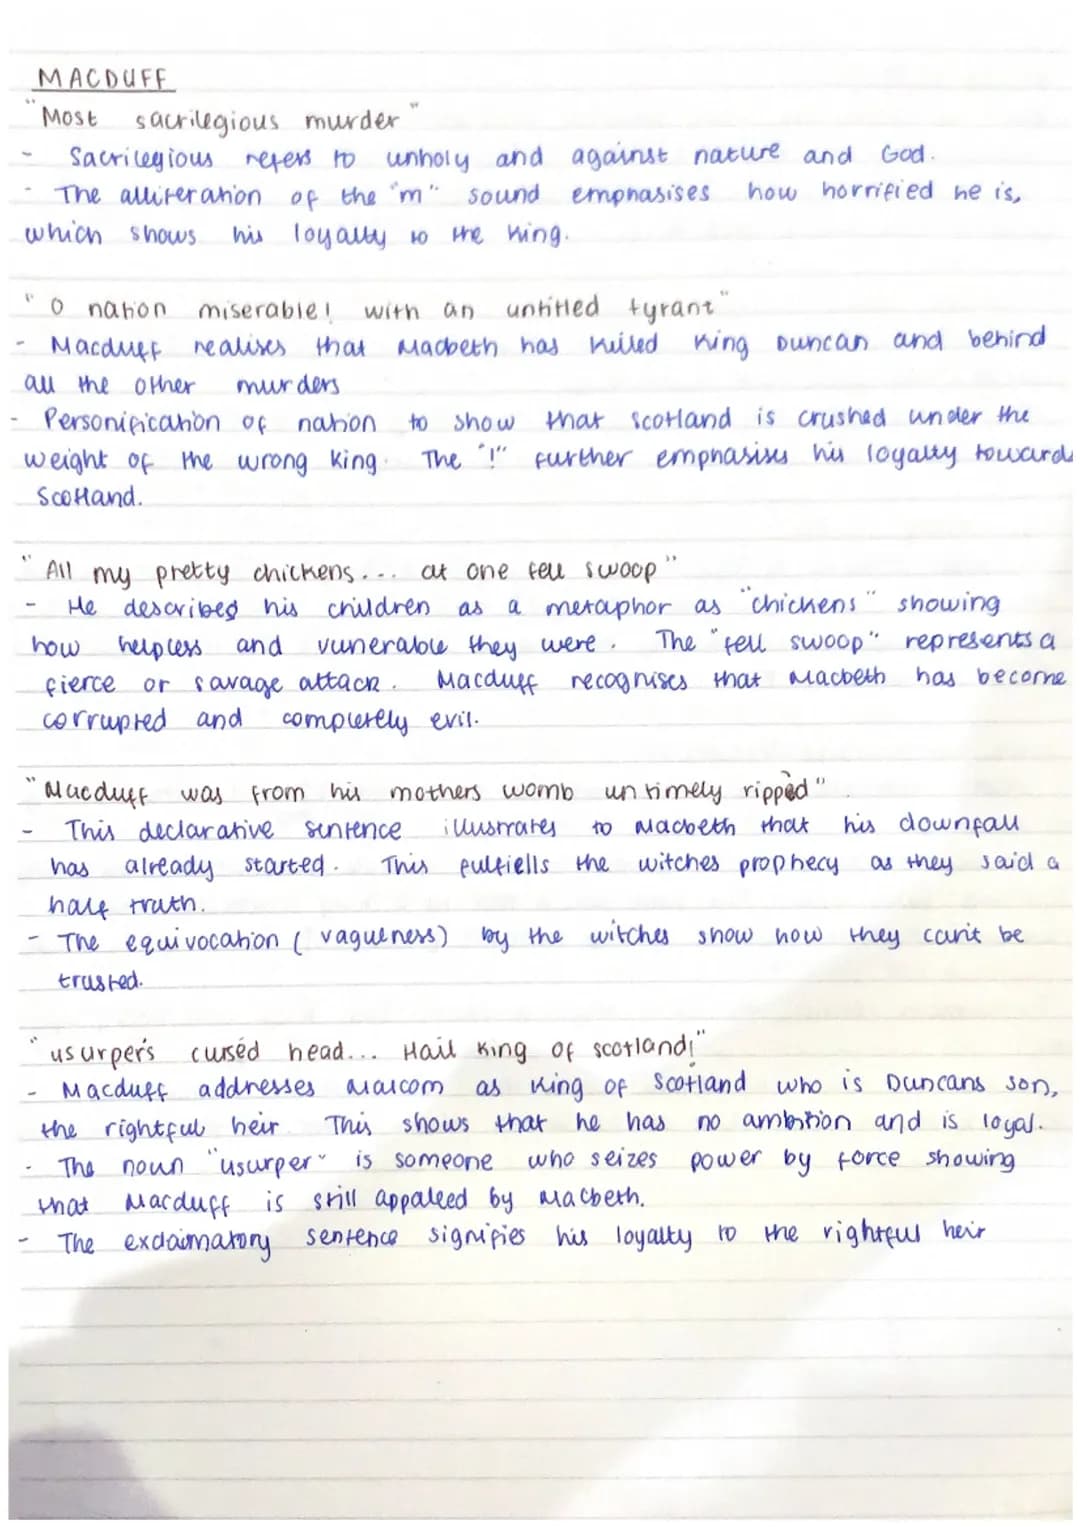 MACDUFF
"Most sacrilegious murder"
- Sacrilegious refers to unholy and against nature and God.
- The alliteration of the "m" sound emphasises how horrified he is,
which shows his loyalty to the King.
"O nation miserable! with an untitled tyrant"
- Macduff realises that Macbeth has killed King Duncan and behind
all the other murders
- Personification of nation to show that Scotland is crushed under the
weight of the wrong King. The "!" further emphasises his loyalty towards
Scotland.
"All my pretty chickens... at one fell swoop"
- He describes his children as a metaphor as "chickens" showing
how helpless and vunerable they were. The "fell swoop" represents a
fierce or savage attack. Macduff recognises that Macbeth has become
corrupted and completely evil.
"Macduff was from his mothers womb untimely ripped"
- This declarative sentence illustrates to Macbeth that his downfall
has already started. This fulfiells the witches prophecy as they said a
half truth.
- The equivocation (vagueness) by the witches show how they can't be
trusted.
"usurper's cursed head... Hail King of Scotland!"
- Macduff addresses Malcom as King of Scotland who is Duncans son,
the rightful heir. This shows that he has no ambition and is loyal.
- The noun "usurper" is someone who seizes power by force showing
that Macduff is still appalled by Macbeth.
- The exclaimatory sentence signifies his loyalty to the rightful heir